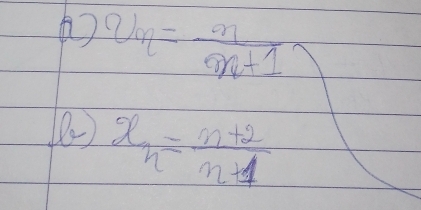 a) v_n = n/(n+1)
b) x_n = (n+2)/(n+1)